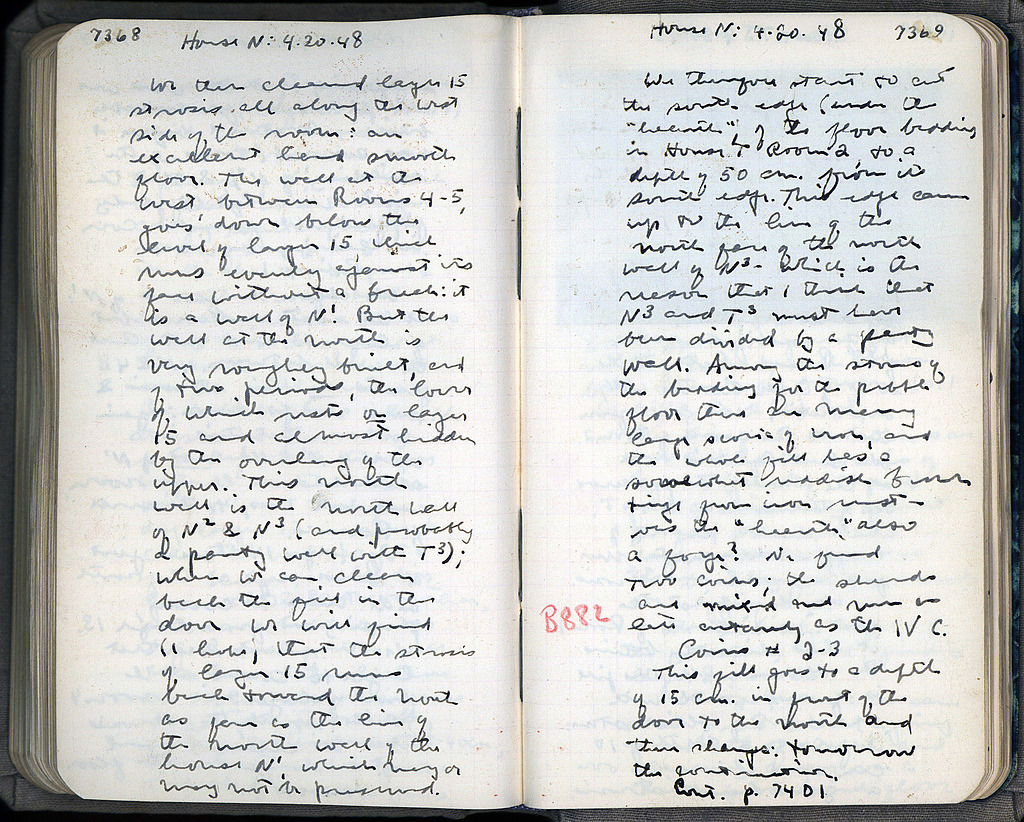 7368
House N: 4.20.48
We then cleaned layer 15
strosis all along the west
side of the room: an
excellent hard smooth
floor. The wall at the
west between Rooms 4-5,
goes down below the
level of layer 15 which
runs evenly against its
face without a break: it
is a wall of N¹. But the
wall at the north is
very roughly built, and
of two periods, the lower
of which rests on layer
15 and almost hidden
by the overhang of the
upper. This north
wall is the north wall
of N² & N³ (and probably
a party wall with T³);
when we can clean
back the fill in the
door we will find
(I believe) that the strosis
of layer 15 runs
back toward the north
as far as the line of
the north wall of the
house N¹, which may or
may not be preserved.
House N: 4.20.48
7369
We therefore start to cut
the south edge (under the
"hearth") of the floor bedding
in House T Room 2, to a
depth of 50 cm. from its
south edge. This edge came
up to the line of the
north face of the north
wall of N³ - which is the
reason that I think that
N³ and T³ must have
been divided by a party
wall. Among the stones of
the bedding for the pebble
floor there are many
large scoria of iron, and
the whole fill has a
somewhat reddish brown
tinge from iron rust -
was the "hearth" also
a forge? We find
two coins; the sherds
are mixed and run as
late certainly as the IV C.
B882
Coins # 2-3
This fill goes to a depth
of 15 cm. in front of the
door to the north and
then change. Tomorrow
the continuation.
Cont. p. 7401